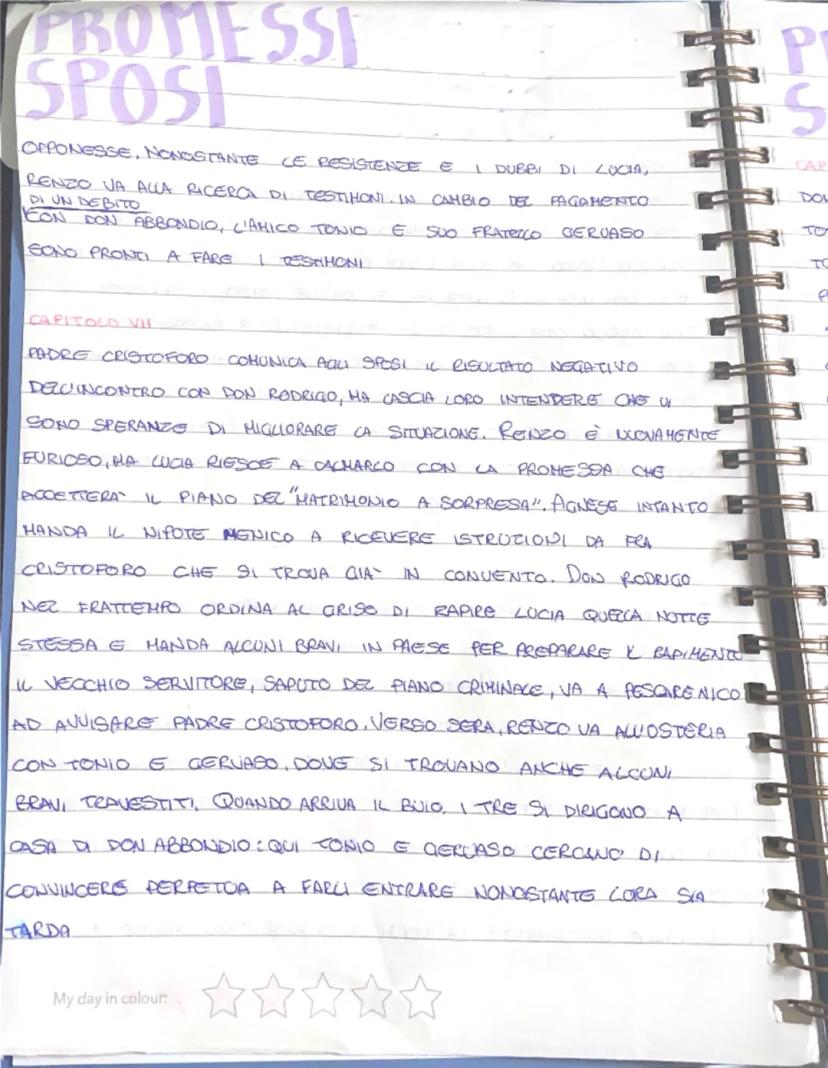 PROMESSI
SPOSI
OPPONESSE, NONOSTANTE LE RESISTENZE E I DUBBI DI LUCIA,
RENZO VA ALLA RICERCA DI TESTIMONI. IN CAMBIO DEL PAGAMENTO
DI UN DEBITO
CON DON ABBONDIO, L'AMICO TONIO E SUO FRATELLO GERVASO
SONO PRONTI A FARE I TESTIMONI
CAPITOLO VII
PADRE CRISTOFORO COMUNICA AGLI SPOSI IL RISULTATO NEGATIVO
DELL'INCONTRO CON DON RODRIGO, MA LASCIA LORO INTENDERE CHE VI
SONO SPERANZE DI MIGLIORARE LA SITUAZIONE. RENZO È NUOVAMENTE
FURIOSO, MA LUCIA RIESCE A CALMARLO CON LA PROMESSA CHE
ACCETTERA' IL PIANO DEL "MATRIMONIO A SORPRESA". AGNESE INTANTO
MANDA IL NIPOTE MENICO A RICEVERE ISTRUZIONI DA FRA
CRISTOFORO CHE SI TROVA GIA' IN CONVENTO. DON RODRIGO
NEL FRATTEMPO ORDINA AL GRISO DI RAPIRE LUCIA QUELLA NOTTE
STESSA E MANDA ALCUNI BRAVI IN PAESE PER PREPARARE IL RAPIMENTO
IL VECCHIO SERVITORE, SAPUTO DEL PIANO CRIMINALE, VA A PESCARENICO
AD AVVISARE PADRE CRISTOFORO. VERSO SERA, RENZO VA ALL'OSTERIA
CON TONIO E GERVASO, DOVE SI TROVANO ANCHE ALCUNI
BRAVI TRAVESTITI. QUANDO ARRIVA IL BUIO, I TRE SI DIRIGONO A
CASA DI DON ABBONDIO: QUI TONIO E GERVASO CERCANO DI
CONVINCERE PERPETUA A FARLI ENTRARE NONOSTANTE L'ORA SIA
TARDA
My day in colour: